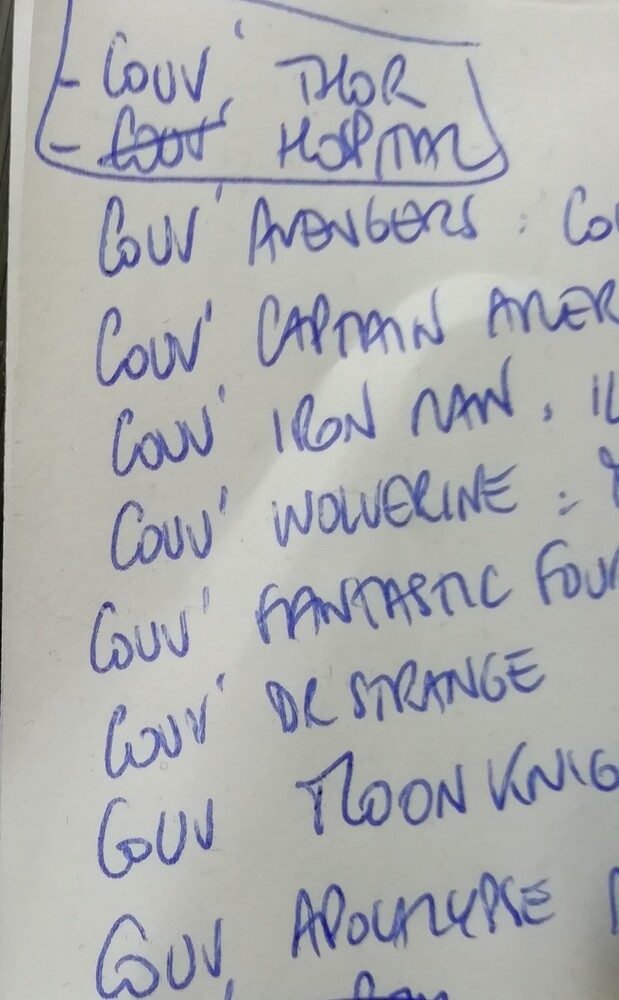 - COUV' THOR
- COUV' HOSPITAL
COUV' AVENGERS : CO
COUV' CAPTAIN AMER
COUV' IRON MAN . IL
COUV' WOLVERINE :
COUV' FANTASTIC FOUR
COUV' DR STRANGE
COUV MOON KNIG
COUV APOCALYPSE